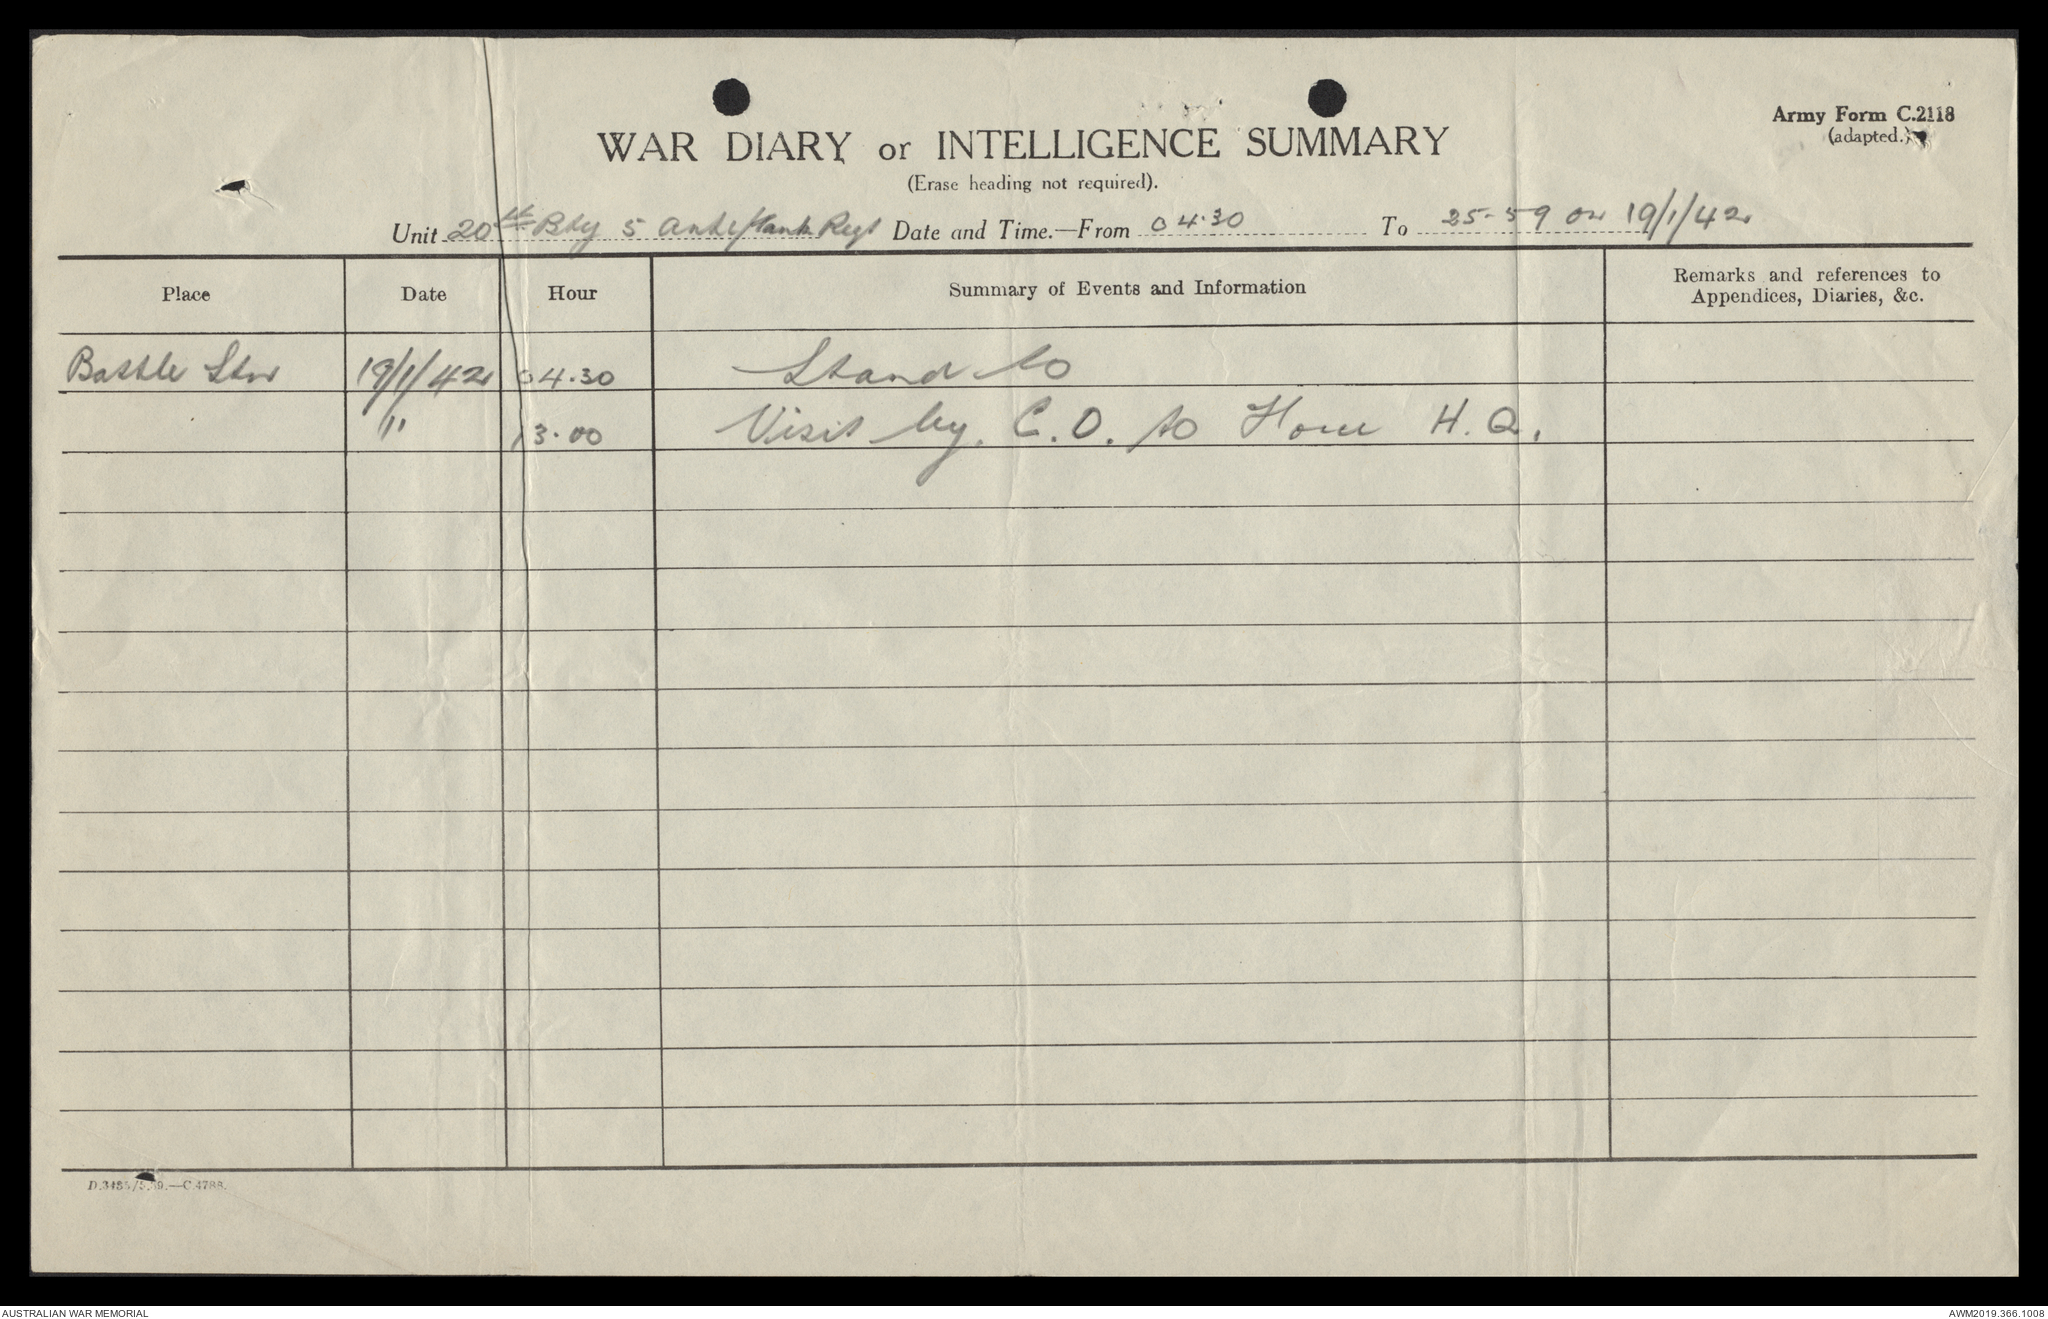 Army Form C.2118
(adapted.)
WAR DIARY or INTELLIGENCE SUMMARY
(Erase heading not required).
Unit 20th Bty 5 Anti/tank Regt Date and Time.—From 04.30 To 25-59 on 19/1/42
Place Date Hour Summary of Events and Information Remarks and references to
Appendices, Diaries, &c.
Battle Stn 19/1/42 04.30 Stand to
" 13.00 Visit by. C.O. to Home H.Q.
AUSTRALIAN WAR MEMORIAL AWM2019.366.1008